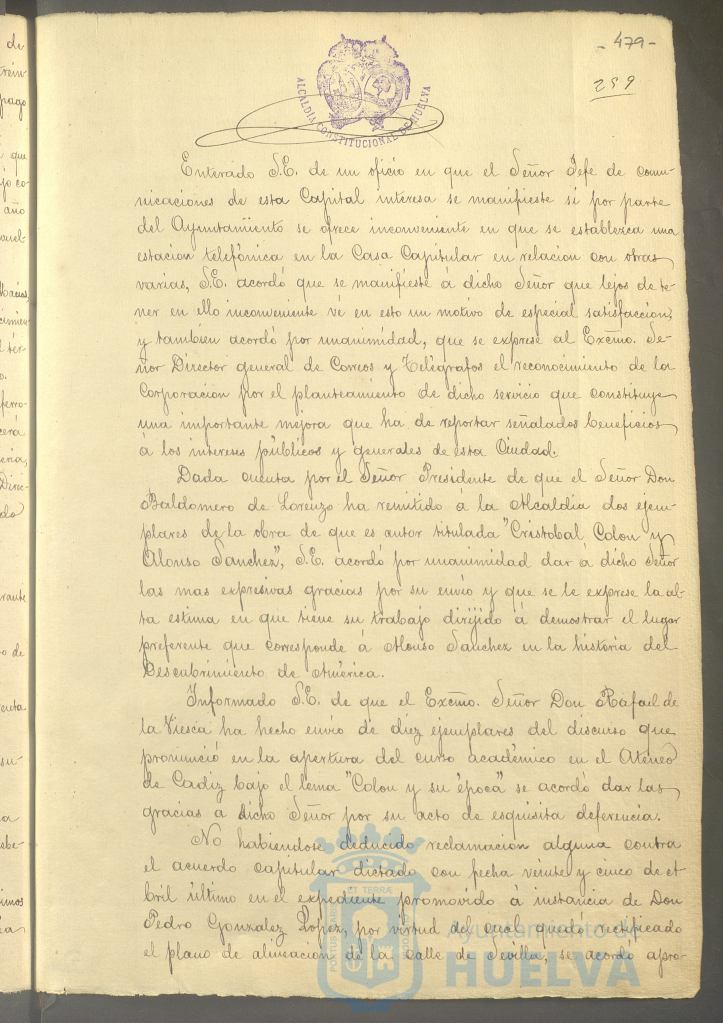 - 479 -
259
ALCALDIA CONSTITUCIONAL DE HUELVA
Enterado S.E. de un oficio en que el Señor Jefe de comu-
nicaciones de esta Capital interesa se manifieste si por parte
del Ayuntamiento se ofrece inconveniente en que se establezca una
estacion telefónica en la Casa Capitular en relacion con otras
varias, S.E. acordó que se manifieste á dicho Señor que lejos de te-
ner en ello inconveniente vé en esto un motivo de especial satisfaccion,
y tambien acordó por unanimidad, que se exprese al Excmo. Se-
ñor Director general de Correos y Telégrafos el reconocimiento de la
Corporacion por el planteamiento de dicho servicio que constituye
una importante mejora que ha de reportar señalados beneficios
á los intereses públicos y generales de esta Ciudad.
Dada cuenta por el Señor Presidente de que el Señor Don
Baldomero de Lorenzo ha remitido á la Alcaldia dos ejem-
plares de la obra de que es autor titulada "Cristobal Colon y
Alonso Sanchez", S.E. acordó por unanimidad dar á dicho Señor
las mas expresivas gracias por su envío y que se le exprese la al-
ta estima en que tiene su trabajo dirijido á demostrar el lugar
preferente que corresponde á Alonso Sanchez en la historia del
Descabrimiento de América.
Informado S.E. de que el Excmo. Señor Don Rafael de
la Viesca ha hecho envío de diez ejemplares del discurso que
pronunció en la apertura del curso académico en el Ateneo
de Cadiz bajo el lema "Colon y su época" se acordó dar las
gracias á dicho Señor por su acto de esquisita deferencia.
No habiendose deducido reclamacion alguna contra
el acuerdo capitular dictado con fecha veinte y cinco de A-
bril último en el expediente promovido á instancia de Don
Pedro Gonzalez Lopez, por virtud del cual quedó rectificado
el plano de alineacion de la calle de Sevilla, se acordó apro-
Ayuntamiento de
HUELVA